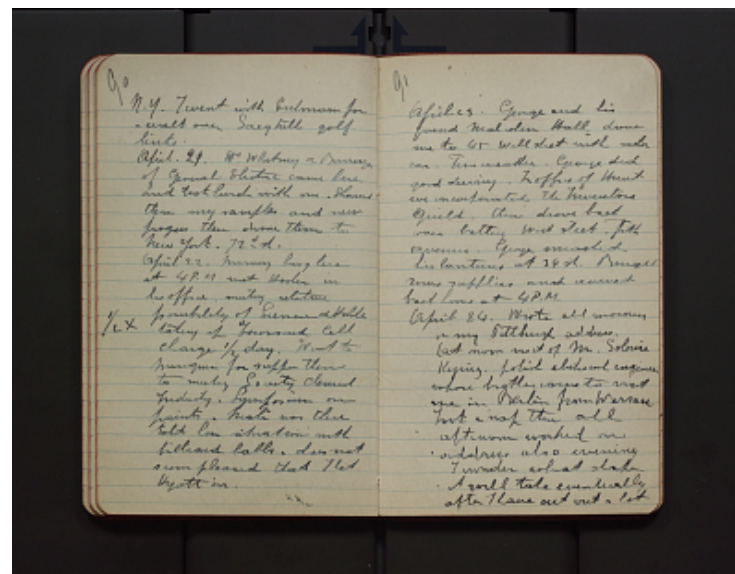 90
N.Y. I went with Eulmann for
a walk over Saegkill golf
links.
April. 21. Mr Whitney &
of General Electric came here
and took lunch with me. Showed
them my samples and new
progress then drove them to
New York. 72d St.
April 22. Murray
at 4 P.M. met in
his office. relative
possibility of Siemens & Halske
taking up Townsend Cell
1/2 X
charge 1/2 day. Went to
for supper then
to meeting Society Chemical
Industry. Symposium on
paints. was there
told situation with
billiard balls. does not
seem pleased that I let
Hyatt in.
91
April 23. George and his
friend Malcolm Hull, drove
me to 45 Wall street with
car. Fine weather. George did
good driving. In office of
we incorporated the Inventors
Guild. Then drove back
over battery West Street. fifth
avenue. George smashed
his lanterns at 34 St. Bought
some supplies and arrived
back home at 4 P.M.
April 24. Wrote all morning
on my Pittsburgh address.
Last noon visit of Mr.
polish electrical engineer
whose brother came to visit
me in Berlin from Warsaw
Took a nap then all
afternoon worked on
address also evening
I wonder what shape
it will take eventually
after I have cut out a lot